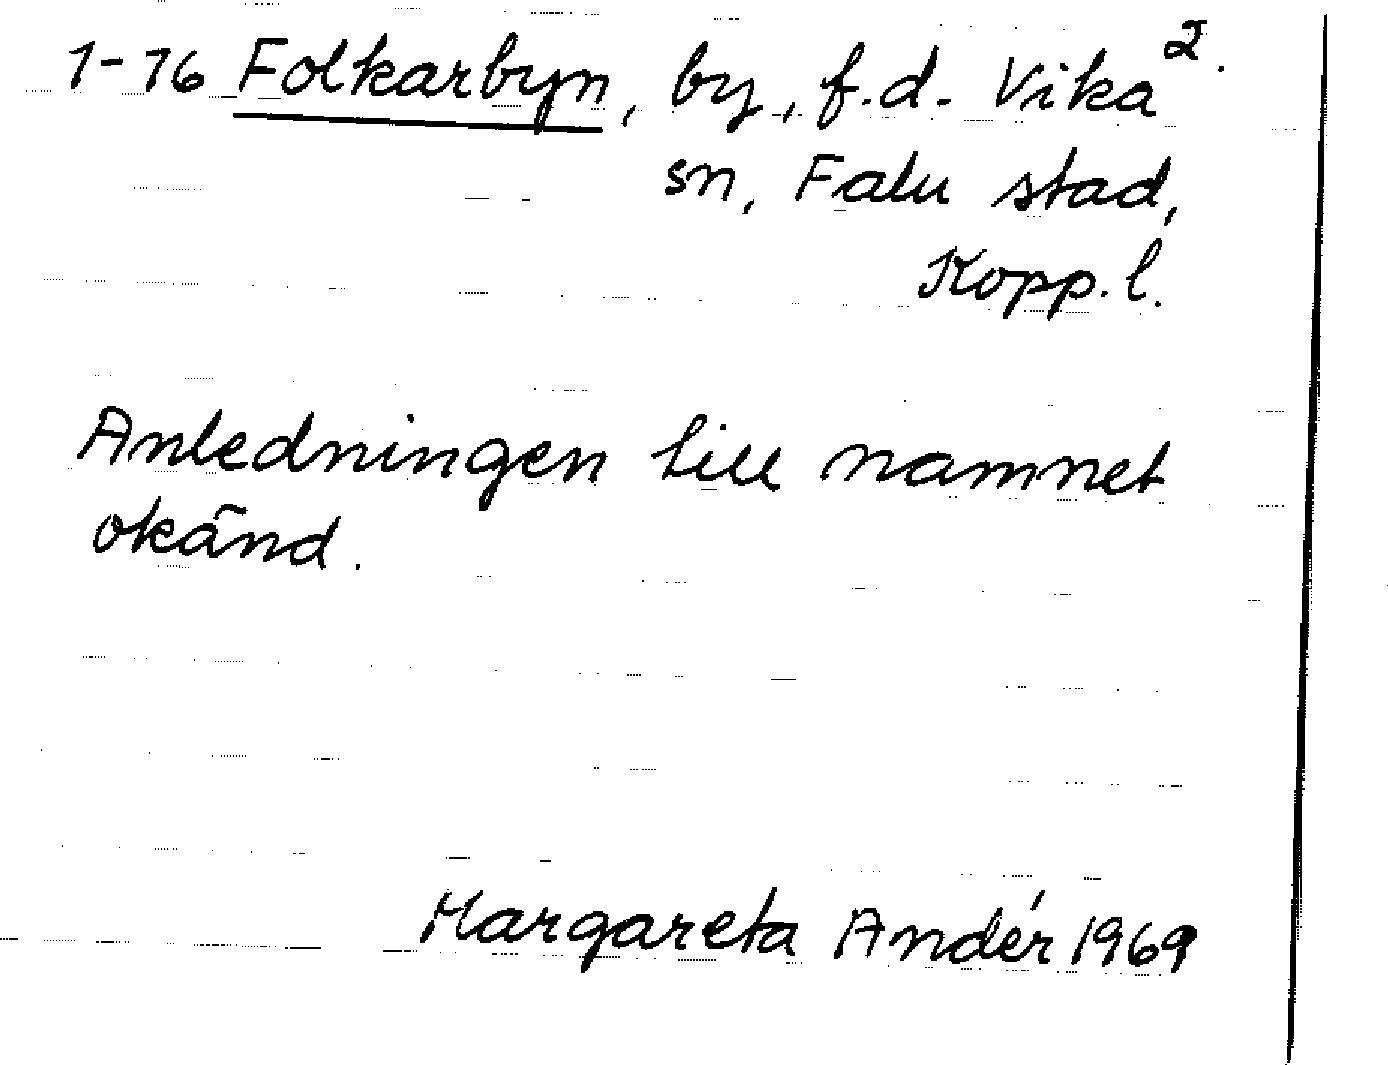 1-76 Folkarbyn, by, f.d. Vika 2.
sn, Falu stad,
Kopp. l.
Anledningen till namnet
okänd.
Margareta Andér 1969